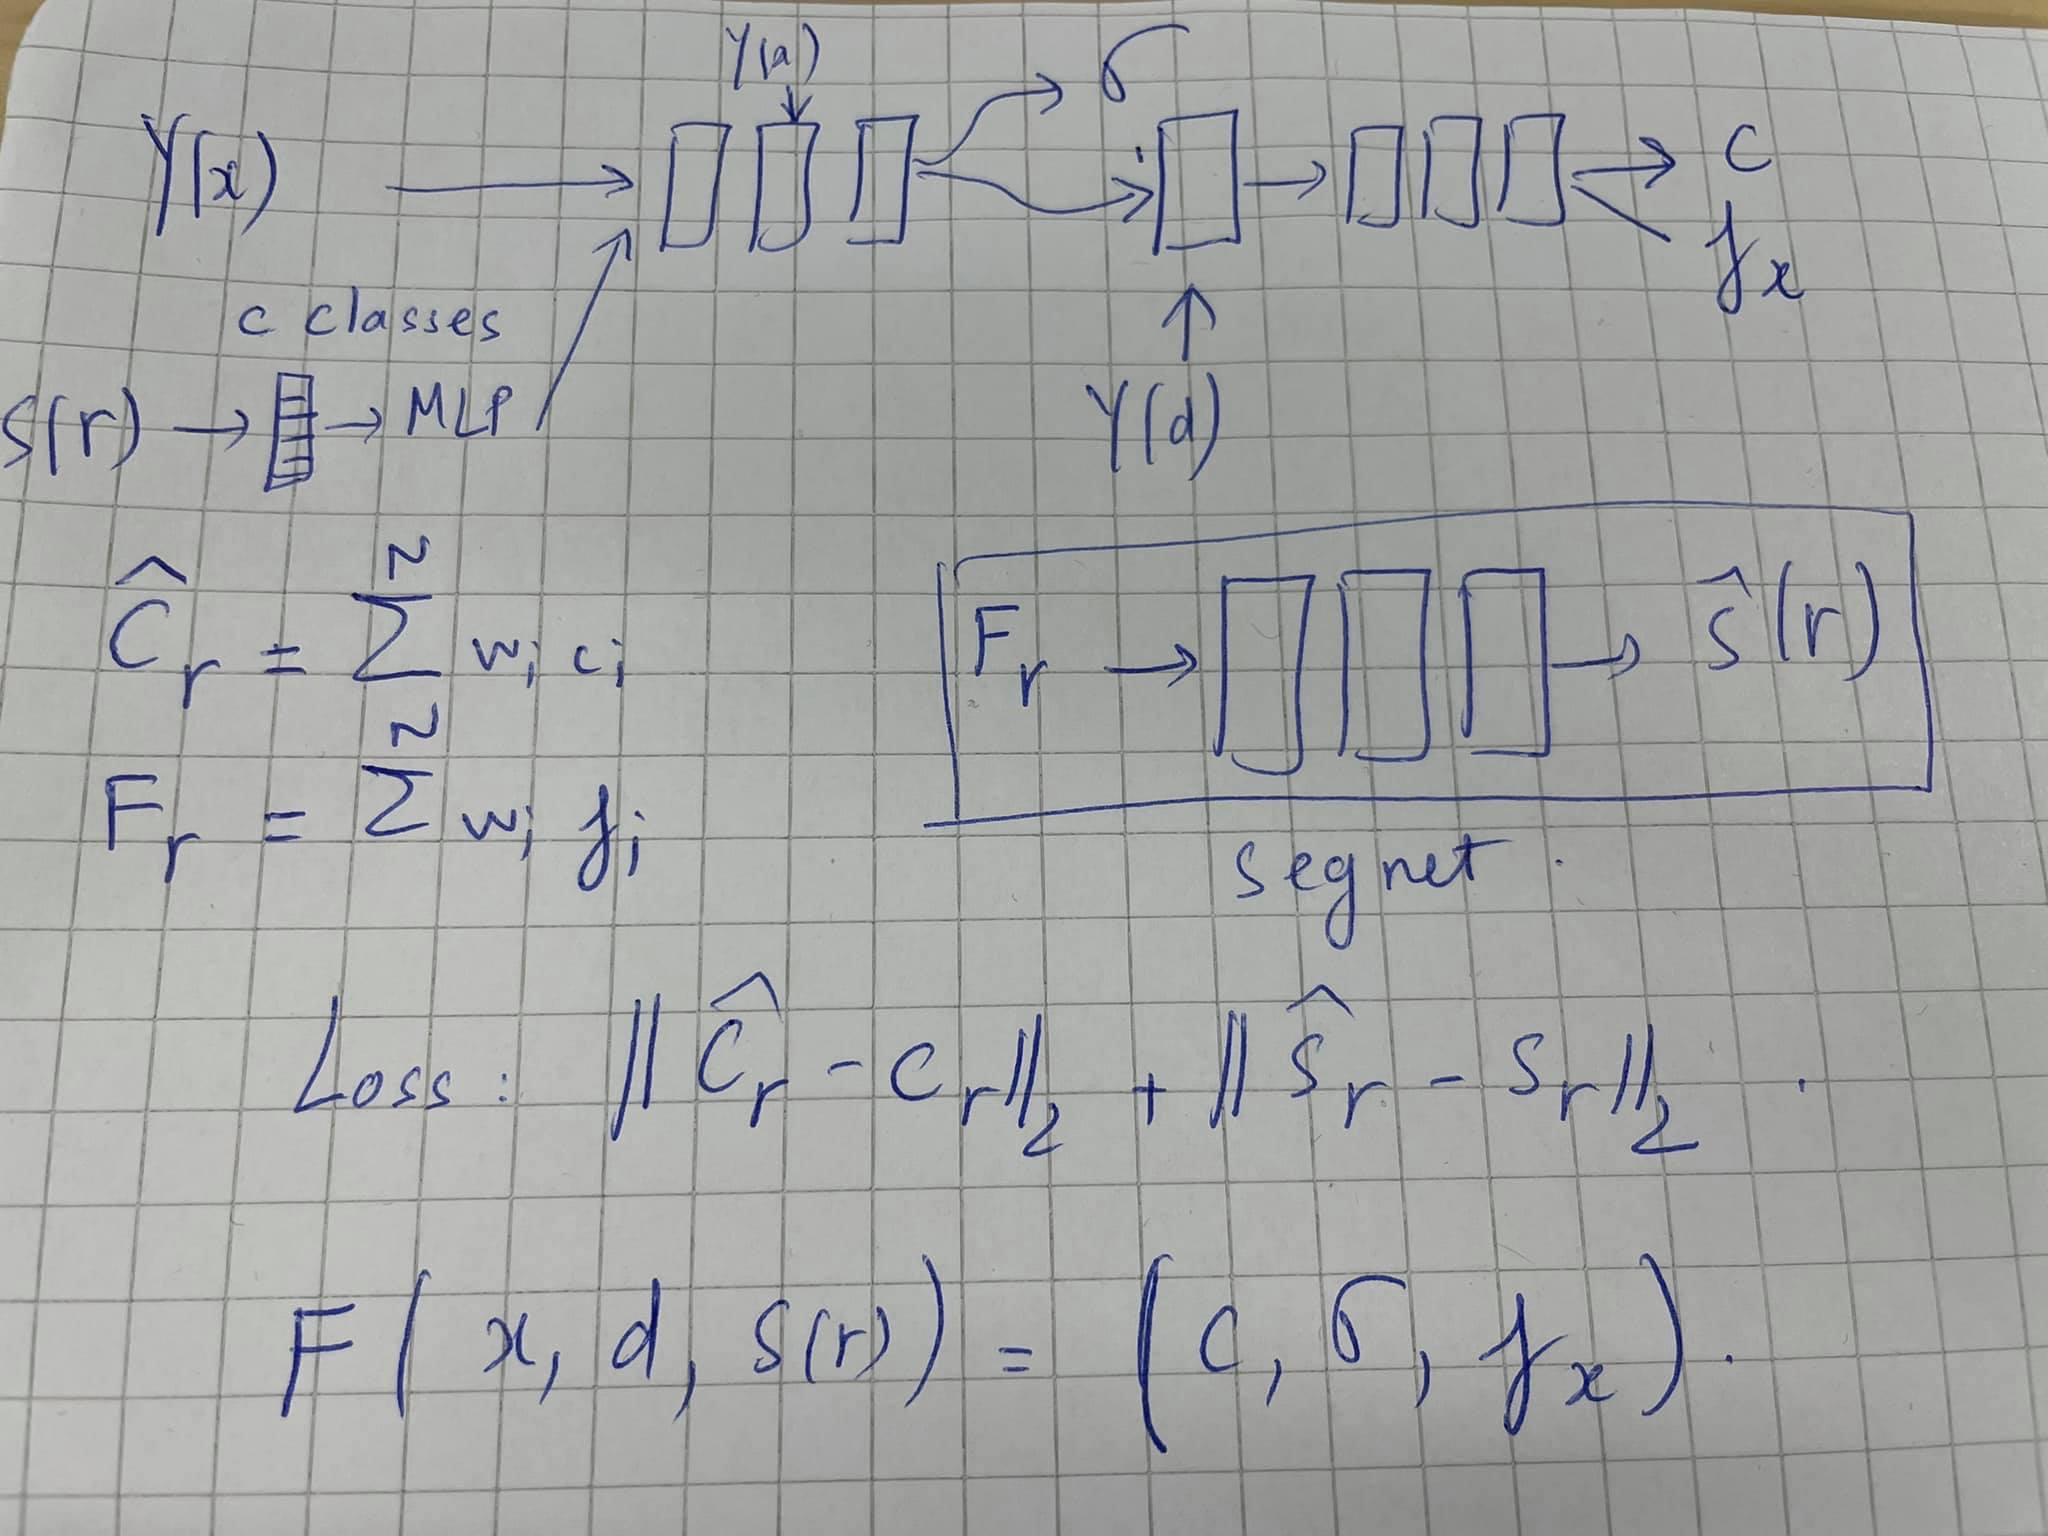 γ(x) → γ(x) σ → c
f_x
c classes
S(r) → → MLP
γ(d)
Ĉ_r = Σ^N w_i c_i
F_r → → ŝ(r)
F_r = Σ^N w_i f_i
segnet.
Loss: || Ĉ_r - C_r ||_2 + || Ŝ_r - S_r ||_2 .
F( x, d, S(r)) = (c, σ, f_x).